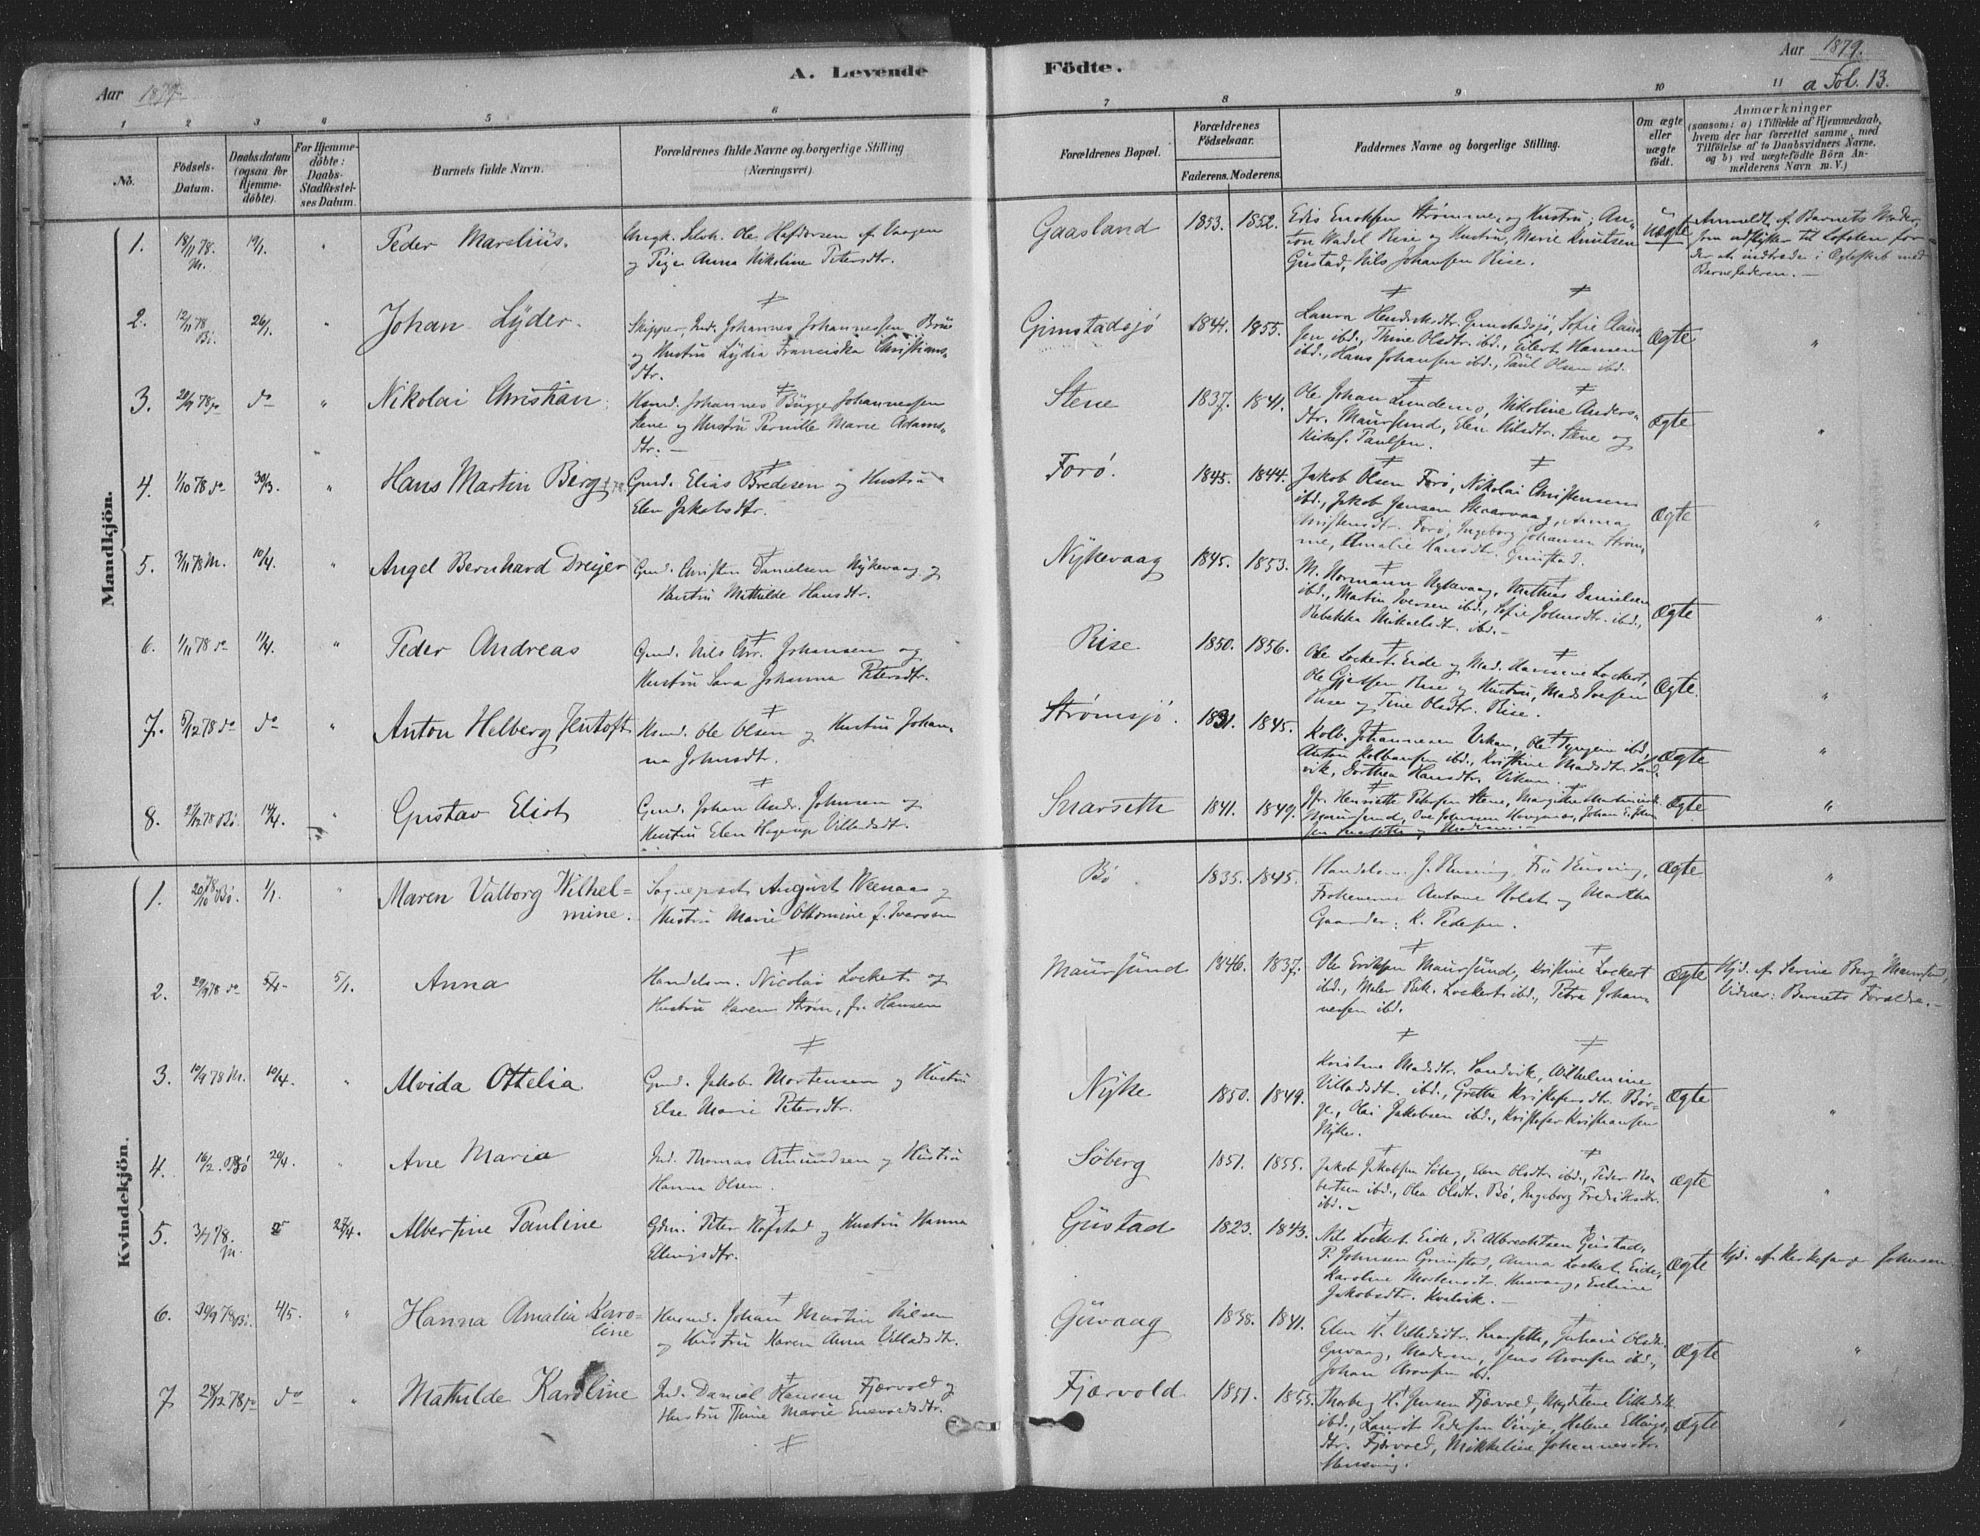 A. Levende Födte.
Aar 1879.
Aar 1879.
a Fol. 13.
1 2 3 4 5 6 7 8 9 10 11
No.
Födsels-Datum.
Daabsdatum (ogsaa for Hjemmedöbte).
For Hjemmedöbte: Daabs-Stadfæstelses Datum.
Barnets fulde Navn.
Forældrenes fulde Navne og borgerlige Stilling (Næringsvei).
Forældrenes Bopæl.
Forældrenes Födselsaar.
Faderens. Moderens.
Faddernes Navne og borgerlige Stilling.
Om ægte eller uægte födt.
Anmærkninger
(saasom: a) i Tilfælde af Hjemmedaab, hvem der har forrettet samme, med Tilföielse af to Daabsvidners Navne, og b) ved uægtefödte Börn Anmelderens Navn m. V.)
Mandkjön.
1. 18/11 78. M. 19/1. " Peder Marelius.
Ungk. Selvh. Ole Hofdorsen af Vaagen
og Pige Anna Nikoline Petersdtr.
Gaasland 1853. 1852.
Edis Enoksen Strømme og Hustru; Anton Wadel Rise og Hustru, Marie Knutsen
Gustad, Nils Johansen Rise.
Uægte
Anmeldt af Barnets Moder,
som udflytter til Lofoten for
der at indtræde i Ægteskab med
Barnefaderen.
2. 12/11 78 Bö. 26/1. " Johan Lyder.
Skipper, Ind. Johannes Johannessen Brue
og Hustru Lydia Franciska Christians-
dtr.
Gimstadsjö 1844. 1855.
Laura Hendriksdtr. Gimstadsjö, Sofie Claus-
sen ibd., Thine Olsdtr. ibd., Eilert Hansen
ibd., Hans Johansen ibd., Paul Olsen ibd.
Ægte "
3. 20/9 78 do do " Nikolai Christian.
Husmd. Johannes Bügge Johannessen
Stene og Hustru Pernille Marie Adams-
dtr. –
Stene 1837. 1841.
Ole Johan Lundemo, Nikoline Anders-
dtr. Maursund, Elen Nilsdtr. Stene og
Kirkes. Paulsen.
Ægte "
4. 1/10 78 do 30/3. " Hans Martin Berg
Gmd. Elias Bredesen og Hustru
Elen Jakobsdtr.
Forö. 1845. 1844.
Jakob Olsen Forö, Nikolai Christensen
ibd., Jakob Jensen Skaarvaag, Anna
Christensdtr. Forö, Ingeborg Johansen Ström-
me, Amalie Hansdtr. Grimstad.
Ægte "
5. 3/11 78 M. 10/4. " Angel Bernhard Dreyer
Gmd. Christen Danielsen Nykevaag og
Hustru Mathilde Hansdtr.
Nykevaag 1845. 1853.
M. Normann Nykevaag, Mathias Danielsen
ibd., Martin Iversen ibd., Sofie Johnsdtr. ibd.,
Rebekka Mikaelsdtr. ibd. –
Ægte "
6. 1/11 78 do 11/4. " Peder Andreas
Gmd. Nils Chr. Johansen og
Hustru Sara Johanna Petersdtr.
Rise 1850. 1856.
Ole Lockert Eide og Mad. Lockert,
Ole Rise og Hustru, Mads
Rise og Tine Olsdtr. Rise.
Ægte. "
7. 5/12 78 do do " Anton Helberg Jentoft
Husmd. Ole Olsen og Hustru Johan-
na Johnsdtr.
Strømsjö. 1831. 1845.
Kolb. Johannesen Vikan, Ole ibd.,
Anton Kolbansen ibd., Kristine Madsdtr. Sand-
vik, Dorthea Hansdtr. Vikan.
Ægte "
8. 21/12 78 Bö. 14/4. " Gustav Eliot
Gmd. Johan Andr. Johnsen og
Hustru Elen Hagerup Villadsdtr.
Snarsette 1841. 1849.
Henriette Petersen Stene,
Maursund, Ove Johnsen
Ægte "
Kvindekjön.
1. 20/10 78 Bö. 1/1. " Maren Valborg Wilhel-
mine.
Sogneprest August Weenaas og
Hustru Marie Ottomine f. Iversen
Bö 1835. 1845.
Handelsm. J. Husing, Fru Husing,
Frøknerne Antone Holst og Martha
Gaarder; K. Pedersen.
Ægte "
2. 29/9 78 do 5/4. 5/1. Anna
Handelsm. Nicolai Lockert og
Hustru Karen Strøm, f. Hansen
Maursund 1846. 1837.
Ole Eriksen Maursund, Kristine Lockert
ibd., Maler Lockert ibd., Petra Johan-
nessen ibd.
Ægte
Hjd. af Serine Berg Maursund,
Vidner: Barnets Forældre. –
3. 10/9 78 M. 10/4. " Alvida Ottelia
Gmd. Jakob Mortensen og Hustru
Else Marie Petersdtr.
Nyke 1850. 1849.
Kristine Madsdtr. Sandvik, Wilhelmine
Villadsdtr. ibd., Grethe Kristofersdtr. Bör-
ge, Olai Jakobsen ibd., Kristofer Kristiansen
Nyke.
Ægte "
4. 16/2. Bö 20/4. " Ane Maria
Ind. Thomas Amundsen og Hustru
Hanna Olsen.
Söberg 1851. 1855.
Jakob Jakobsen Söberg, Elen Olsdtr. ibd., Peder Ro-
bertsen ibd., Olea Olsdtr. Bö, Ingeborg Fredriksdtr.
ibd. –
Ægte "
5. 3/1 78. M. 25/4. Albertine Pauline
Gdm. Peter Hofstad og Hustru Hanna
Ellingsdtr.
Gustad 1823. 1843.
Nils Lockert Eide, P. Albrechtsen Gustad,
P. Johnsen Grimstad, Anna Lockert Eide,
Karoline Mortensdtr. Husvaag, Eveline
Jakobsdtr. Kvalvik. –
Ægte
Hjd. af Kirkesanger Johnsen
6. 30/9 78 Bö. 4/5. " Hanna Amalia Karo-
line
Husmd. Johan Martin Nilsen
og Hustru Karen Anna Villadsdtr.
Guvaag 1838. 1841.
Elen H. Villadsdtr. Snarsette, Olsdtr.
Guvaag, Manden, Jens Aronsen ibd.,
Johan Aronsen ibd.
Ægte "
7 28/12 78 do do " Mathilde Karoline
Ind. Daniel Hansen Fjærvold og
Hustru Thine Marie Enevoldsdtr.
Fjærvold 1851. 1855.
Thorberg H. Jensen Fjærvold, Magdalene Villadsdtr.
ibd., Laurits Pedersen Vinje, Helene Ellings-
dtr. Fjærvold, Mikkeline Johannesdtr.
Husvaag.
Ægte "